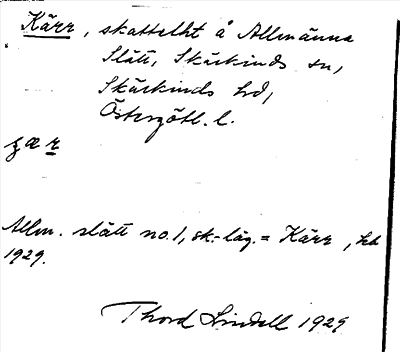 Kärr, skattelht å Allmänna
Slätt, Skärkinds sn,
Skärkinds hd,
Östergötl. l.
Allm. slätt no. 1, sk.-läg. = Kärr, hd
1929.
Thord Lindell 1929